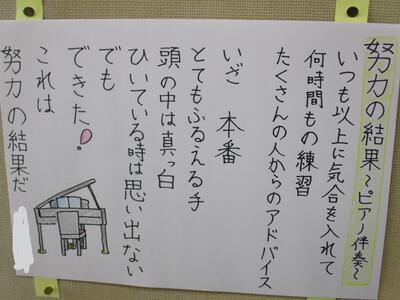 努力の結果～ピアノ伴奏～
いつも以上に気合を入れて
何時間もの練習
たくさんの人からのアドバイス
いざ 本番
とてもふるえる手
頭の中は真っ白
ひいている時は思い出ない
でも
できた!
これは
努力の結果だ